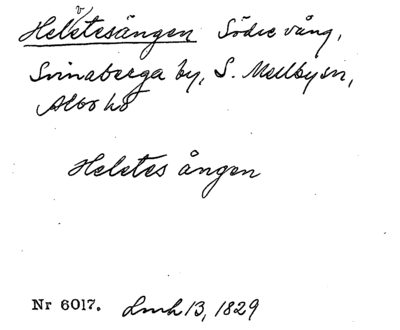 Helvetesängen Södre vång,
Svinaberga by, S. Mellby sn,
Albo hd
Heletes ången
Nr 6017. Lmh 13, 1829